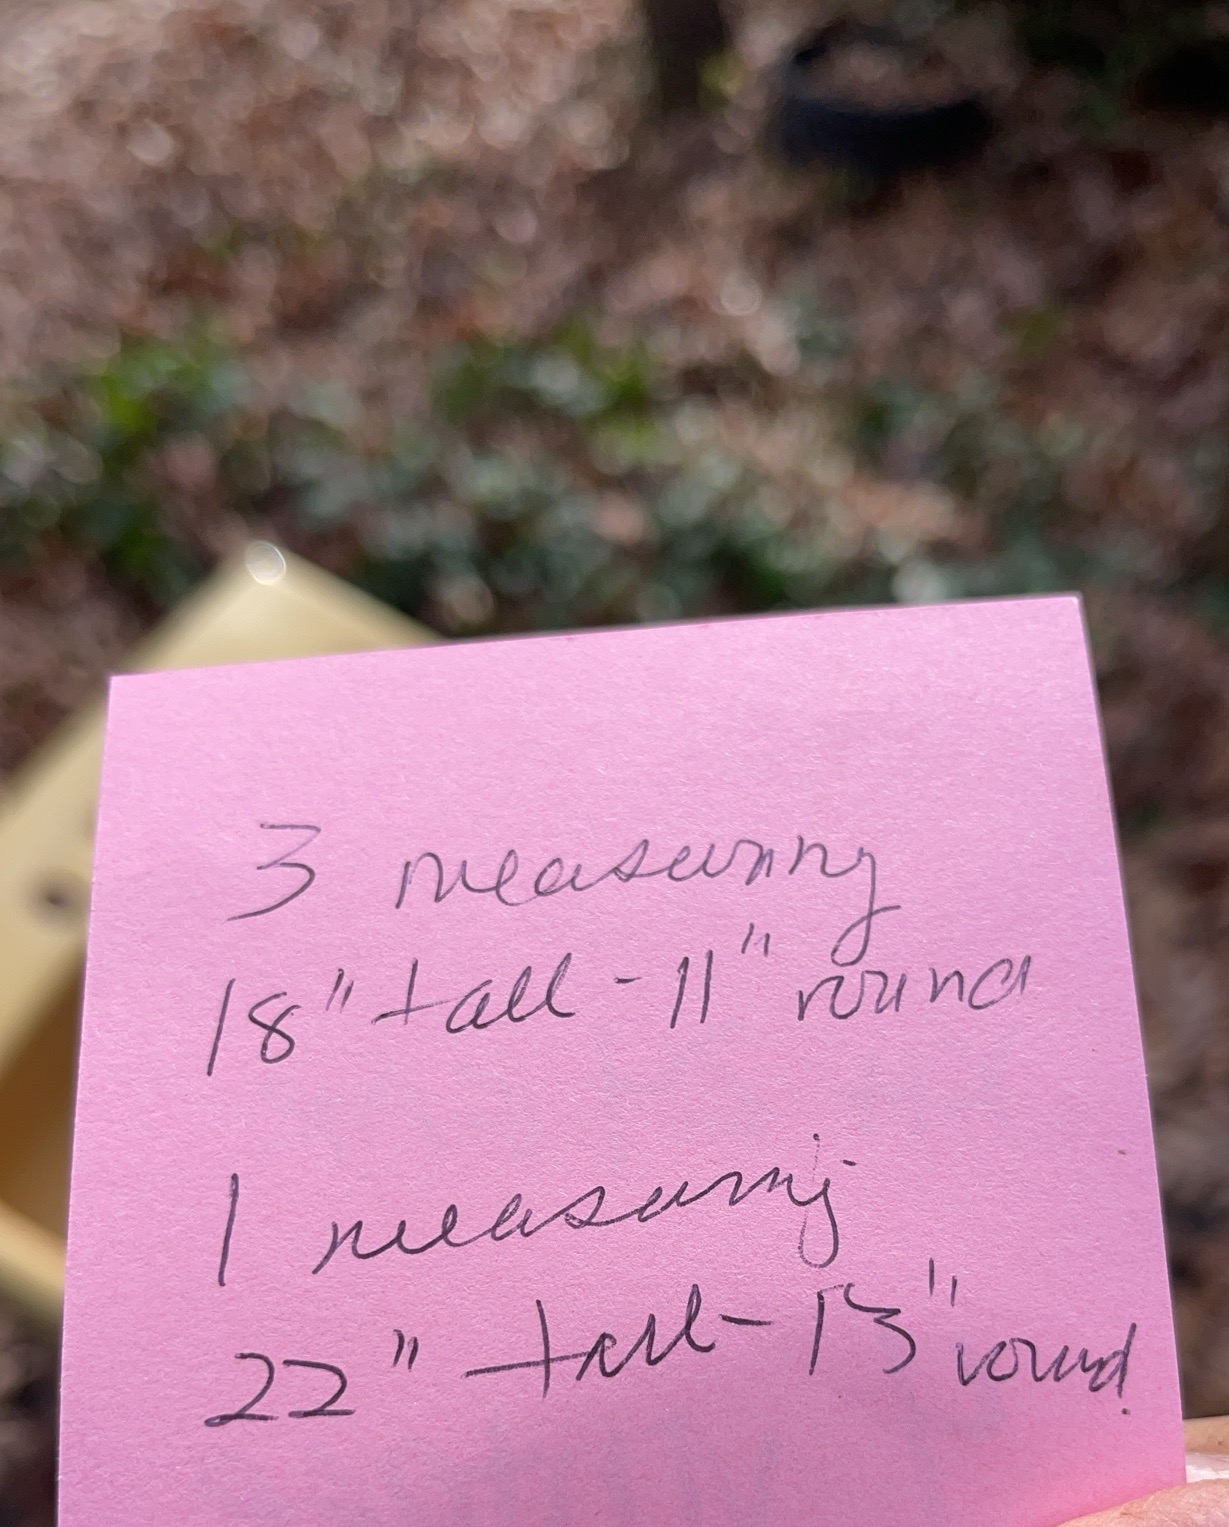 3 measuring
18" tall - 11" round
1 measuring
22" tall - 13" round.